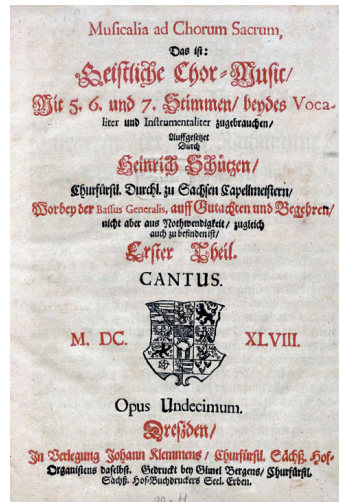 Musicalia ad Chorum Sacrum,
Das ist:
Geistliche Chor-Music/
Mit 5. 6. und 7. Stimmen/ beydes Voca-
liter und Instrumentaliter zugebrauchen/
Auffgesetzet
Durch
Heinrich Schützen/
Churfürstl. Durchl. zu Sachsen Capellmeistern/
Worbey der Bassus Generalis, auff Gutachten und Begehren/
nicht aber aus Nothwendigkeit/ zugleich
auch zu befinden ist/
Erster Theil.
CANTUS.
M. DC. XLVIII.
Opus Undecimum.
Dreßden/
In Verlegung Johann Klemmens/ Churfürstl. Sächß. Hof-
Organistens daselbst. Gedruckt bey Gimel Bergens/ Churfürstl.
Sächß. Hof-Buchdruckers Seel. Erben.